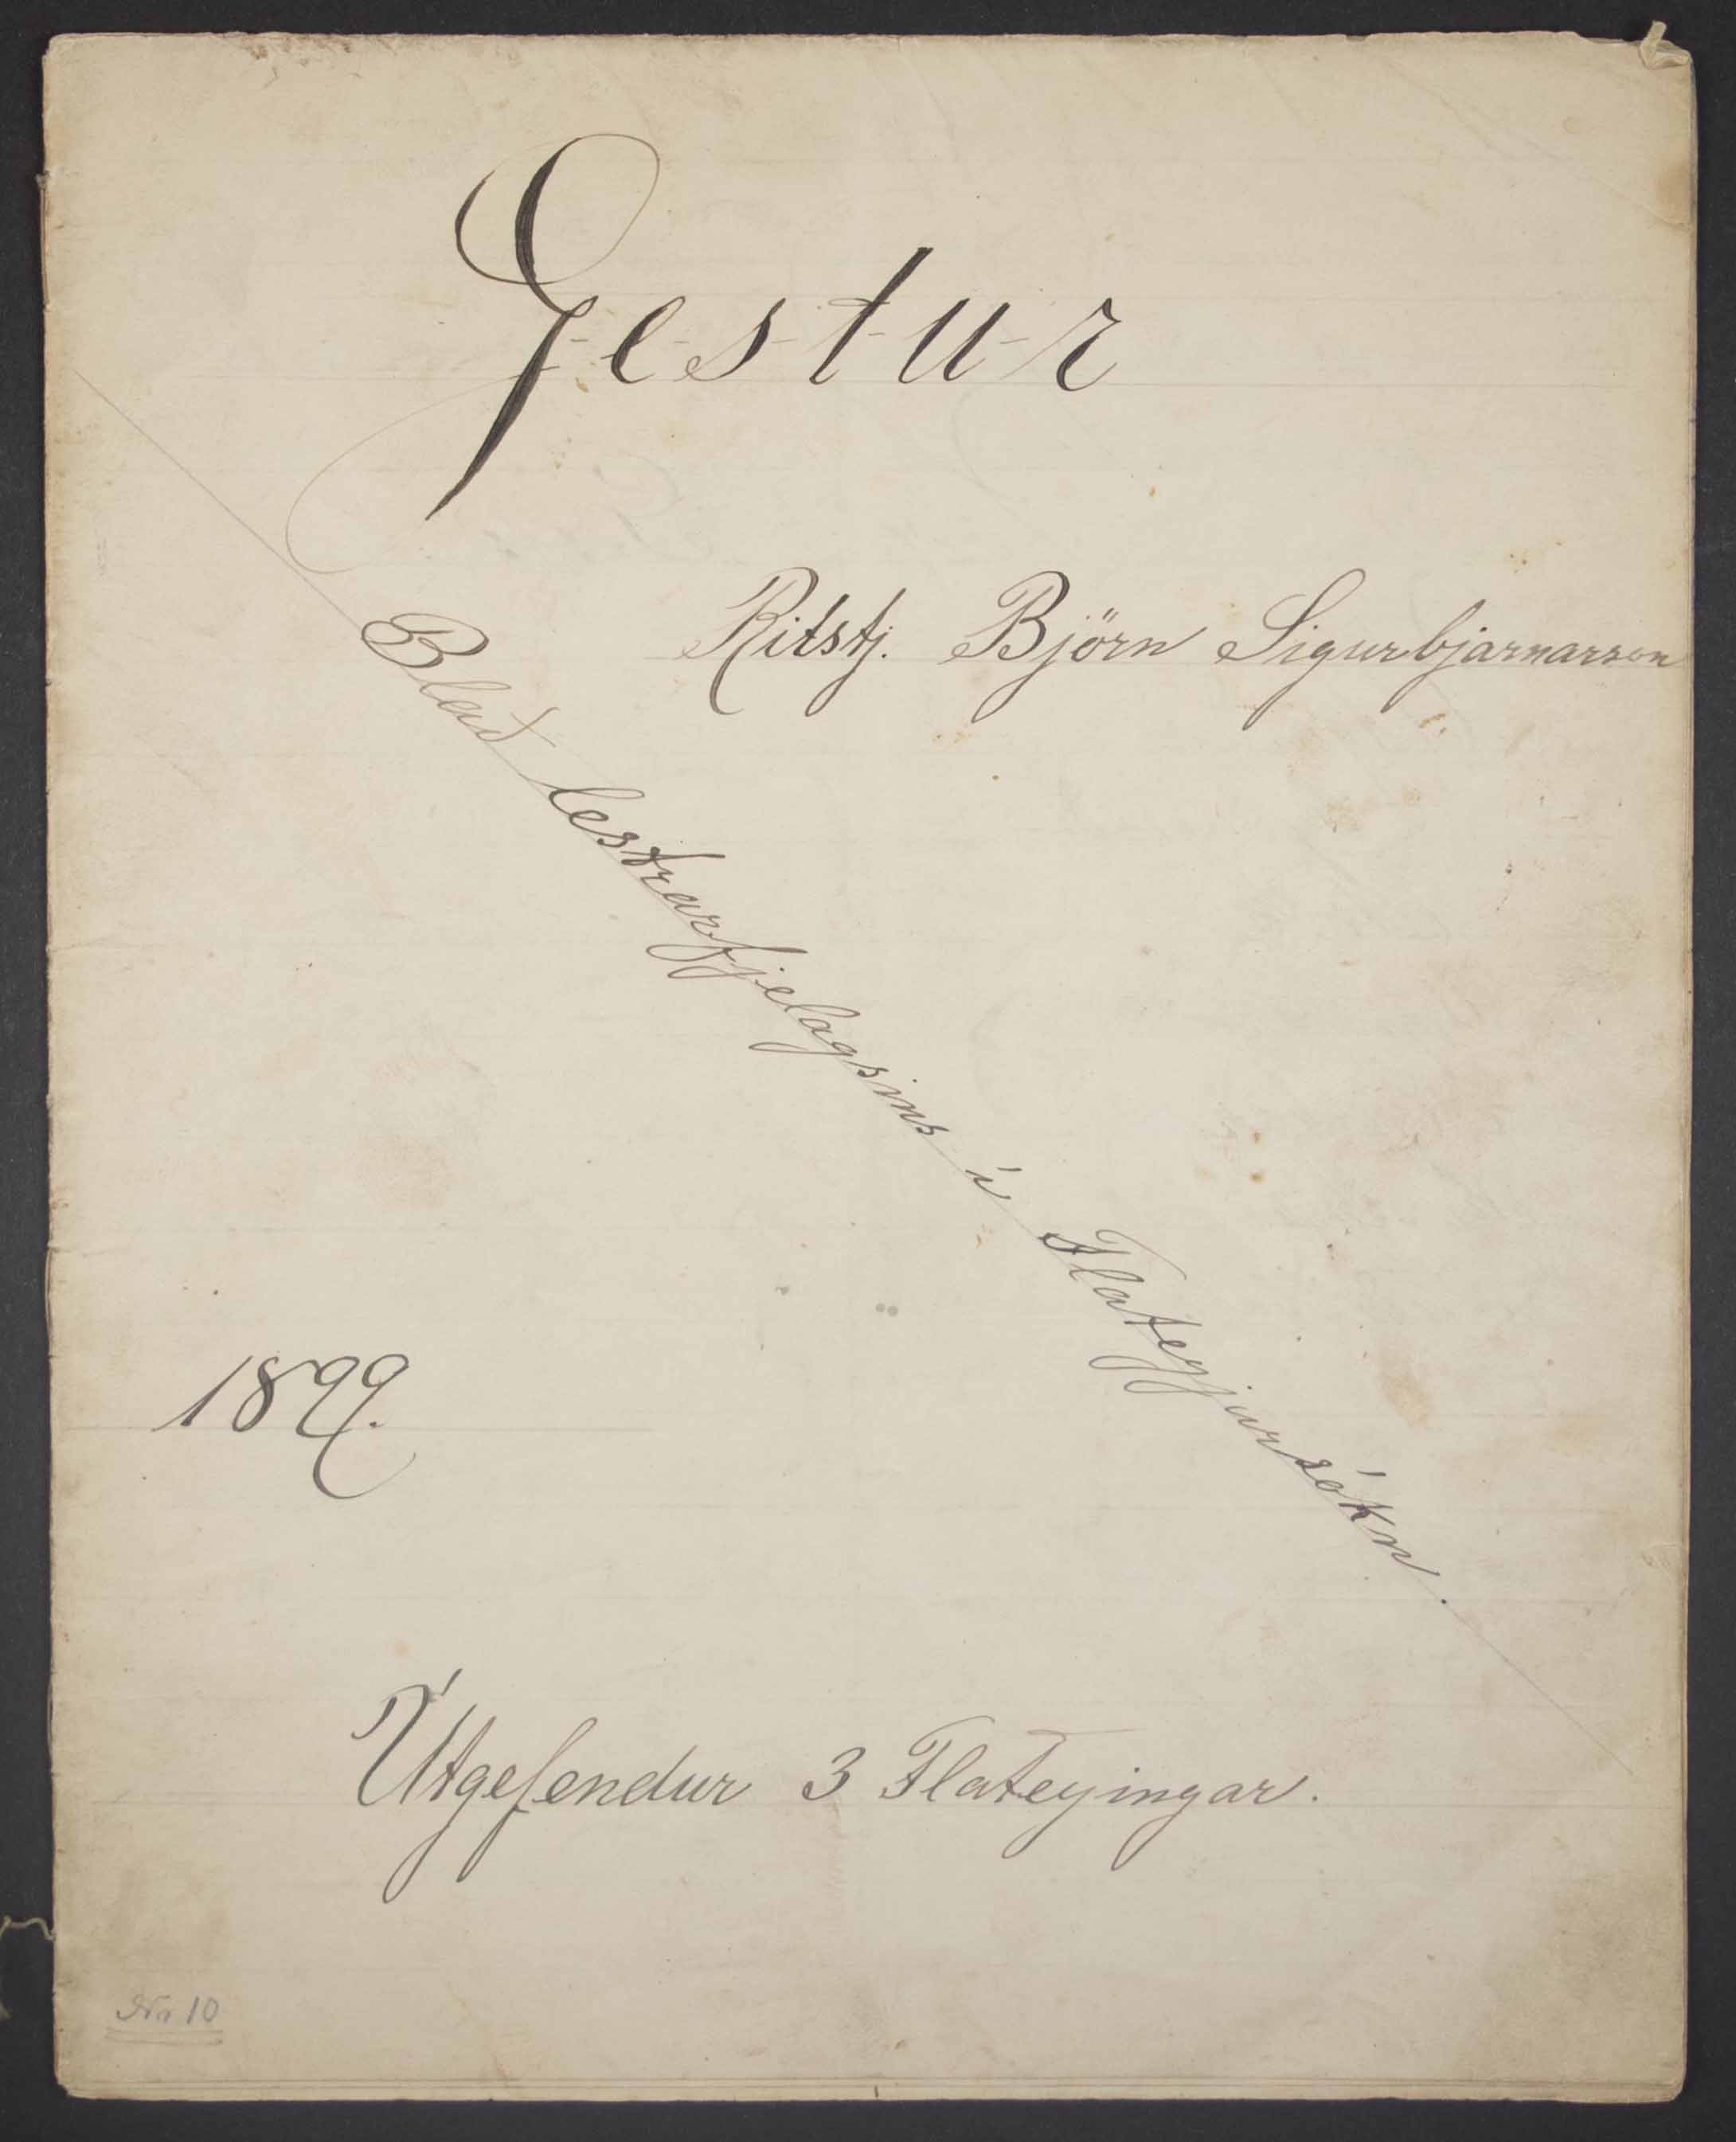 Gestur
Ritstj. Björn Sigurbjarnarson
Blað lestrarfjelagsins í Flateyjarsókn.
1899.
Útgefendur 3 Flateyingar.
Nr 10